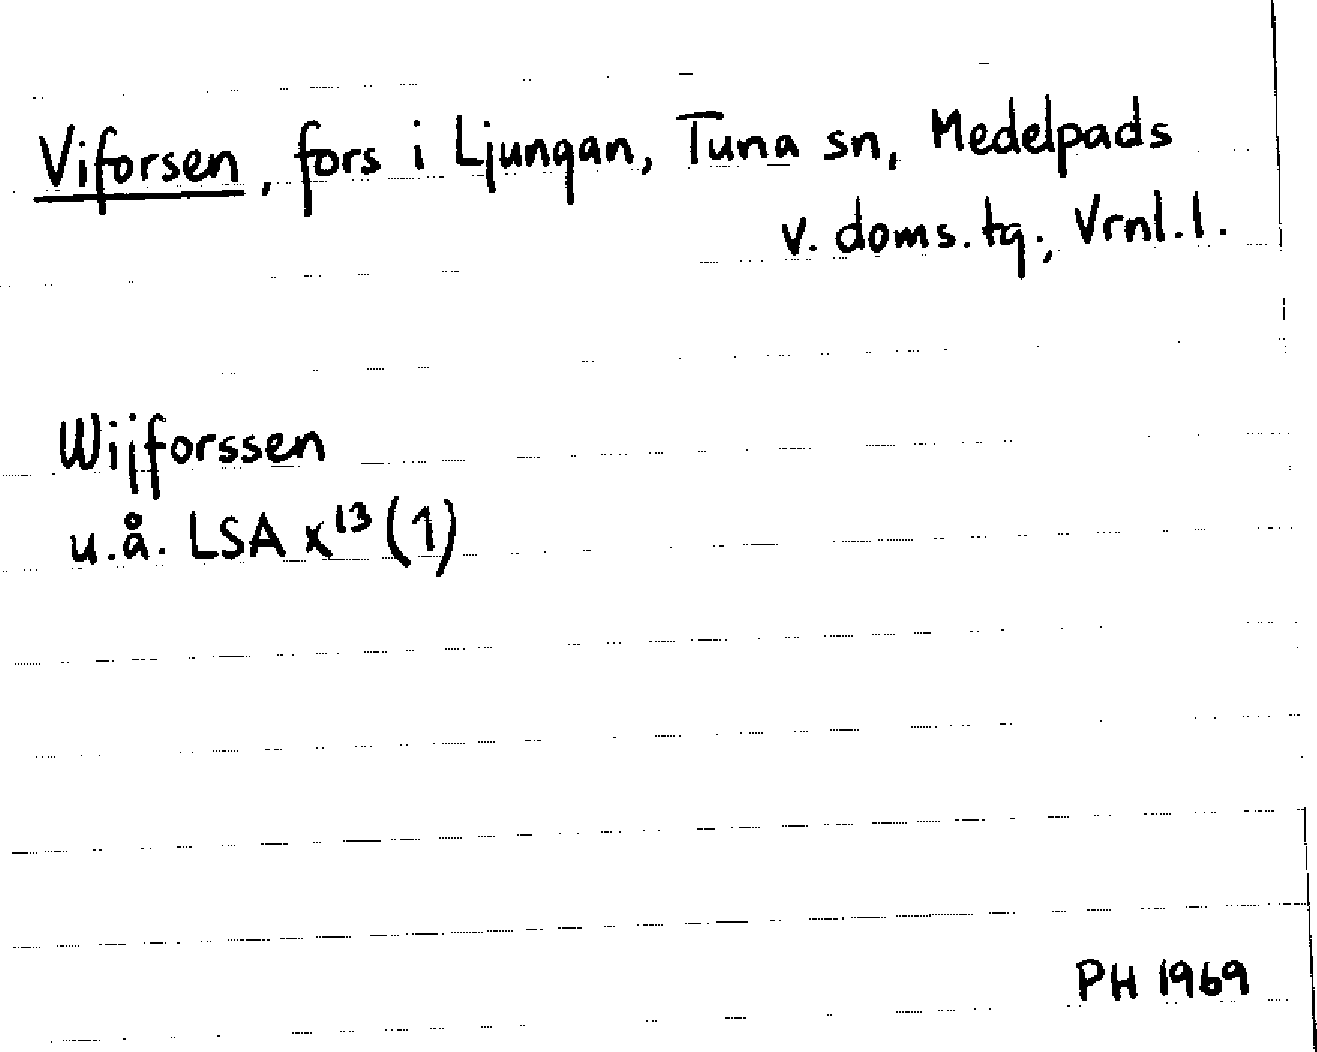 Viforsen, fors i Ljungan, Tuna sn, Medelpads
v. doms.tg., Vrnl.l.
Wijforssen
u.å. LSA x¹³ (1)
PH 1969